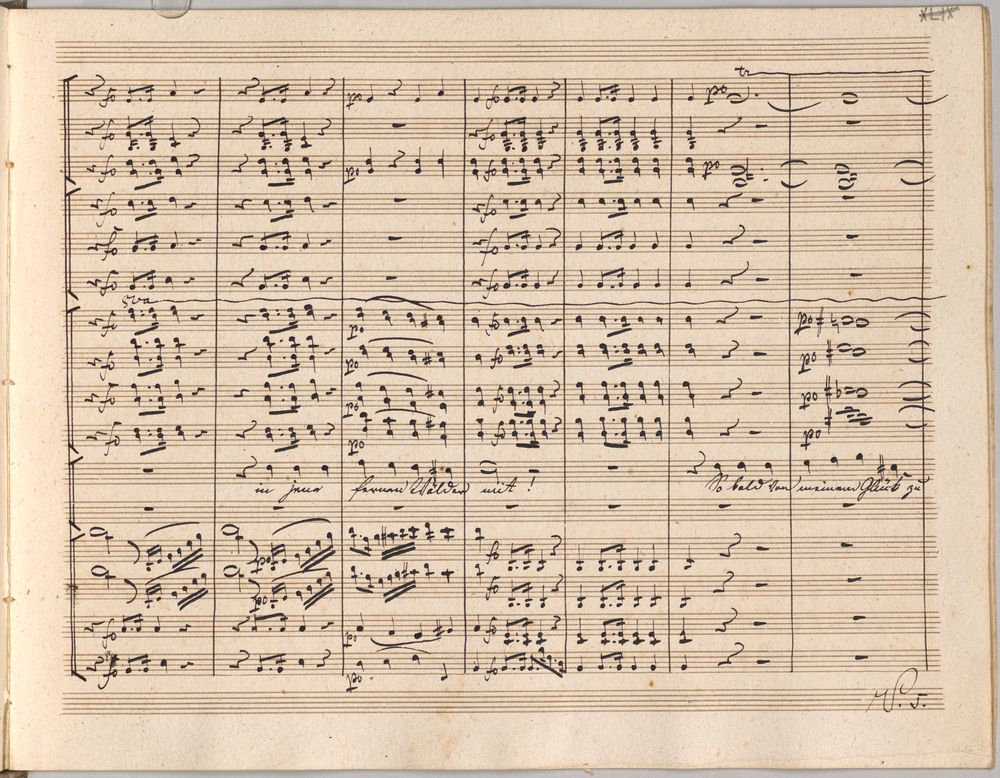 XLIX
tr
fo fo po fo po
fo fo
fo po fo po
fo fo
fo fo
fo fo
8va
fo po fo po
fo po po
fo po fo po
fo po fo po
in jene fernen Wälder mit! So bald von meinem Glück zu
po fo
po fo
fo po fo
fo po fo
V. 5.